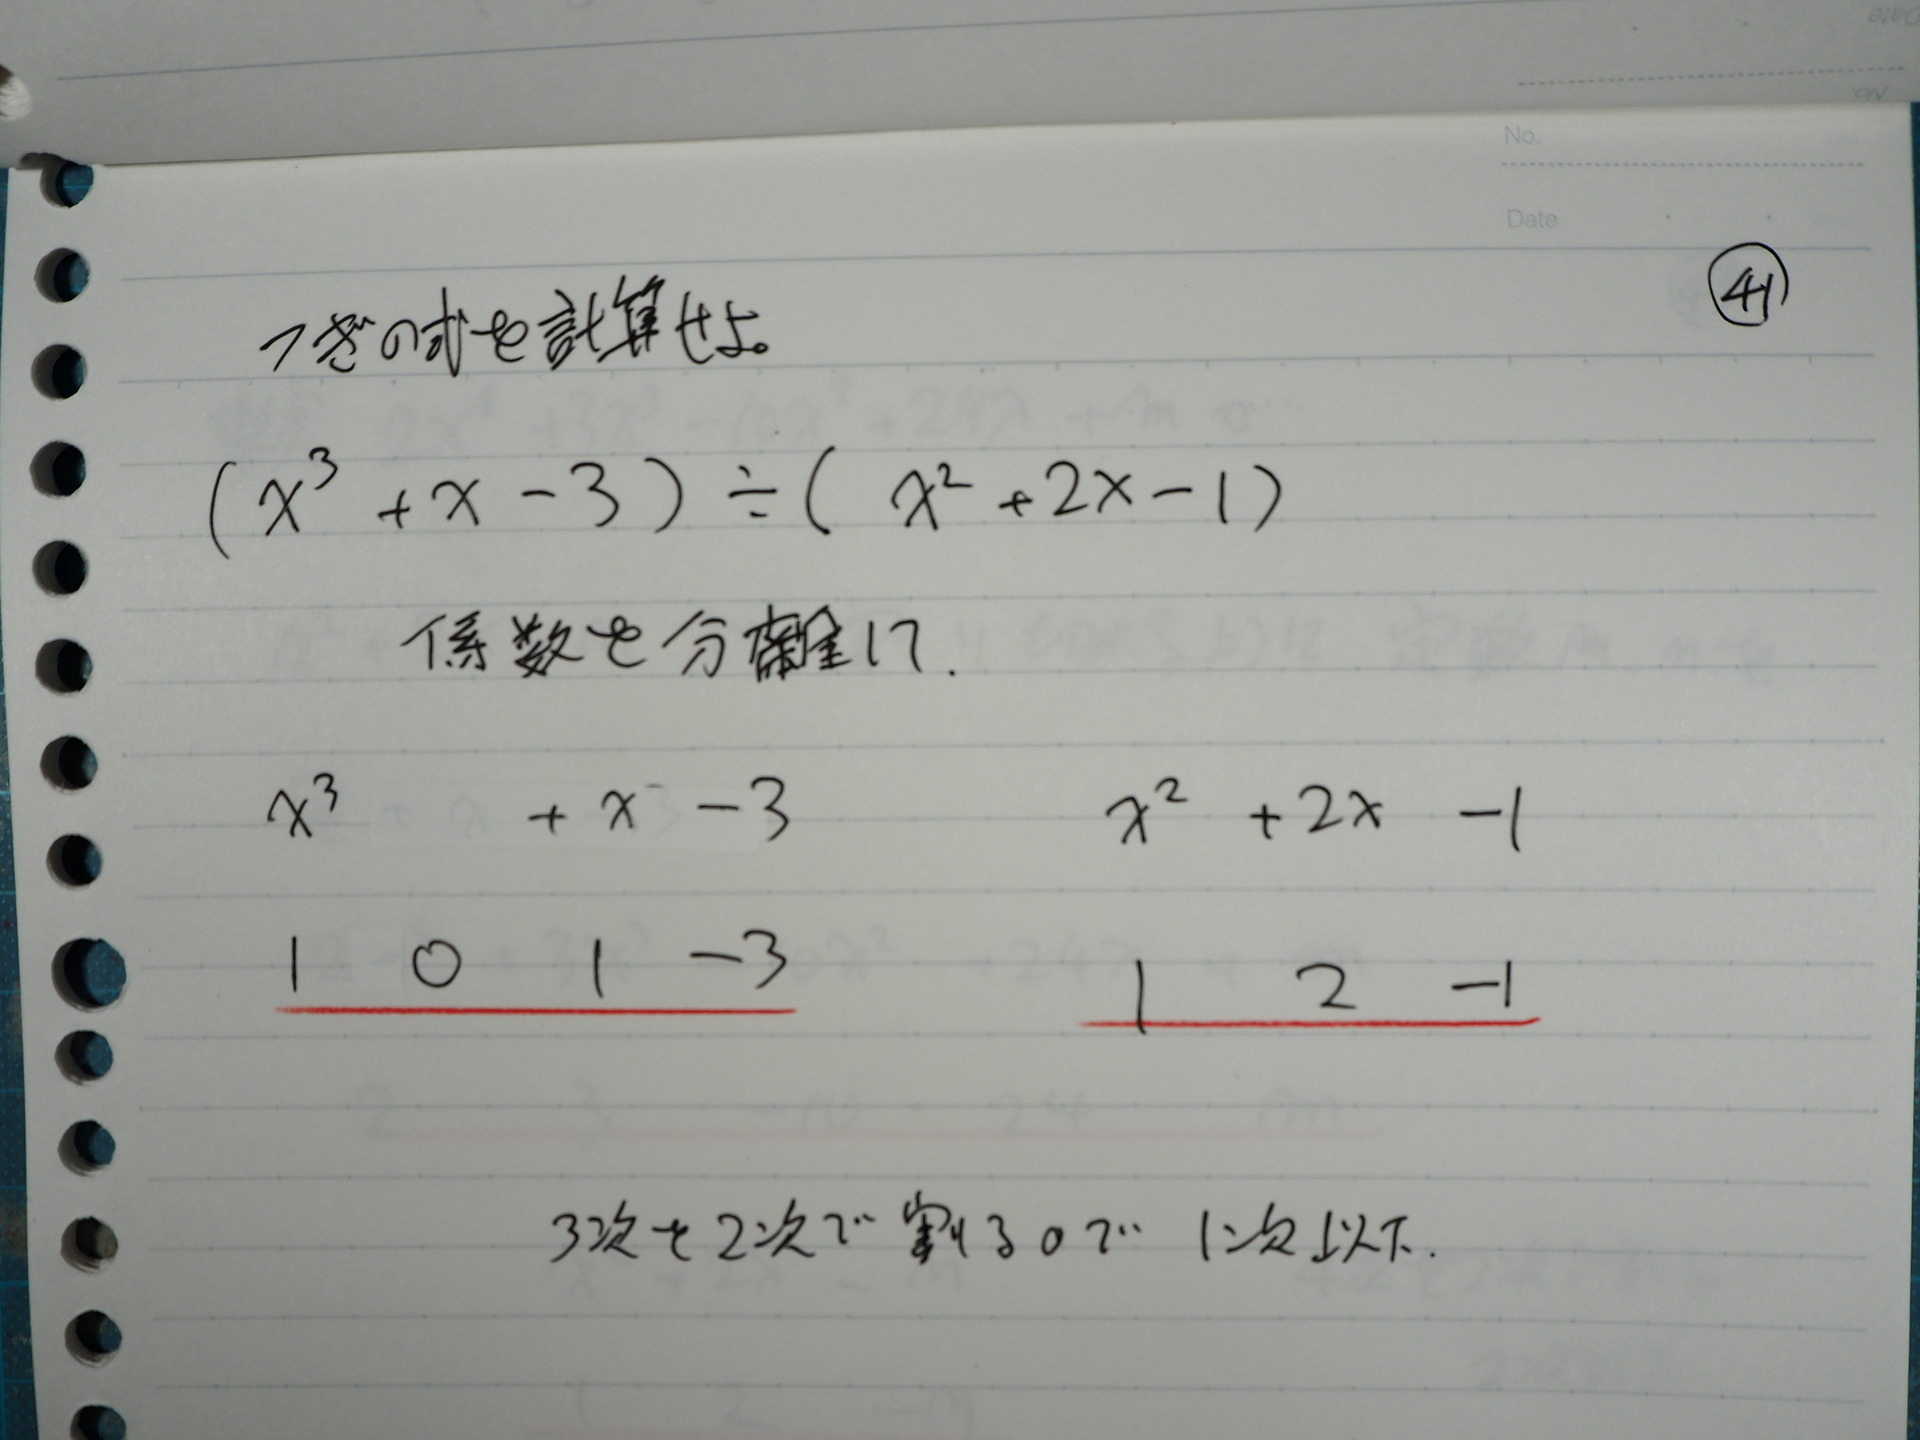 No.
Date
㊶
つぎの式を計算せよ。
(x³ + x - 3) ÷ (x² + 2x - 1)
係数を分離して.
x³ + x - 3 x² + 2x - 1
1 0 1 -3 1 2 -1
3次を2次で割るので 1次以下.